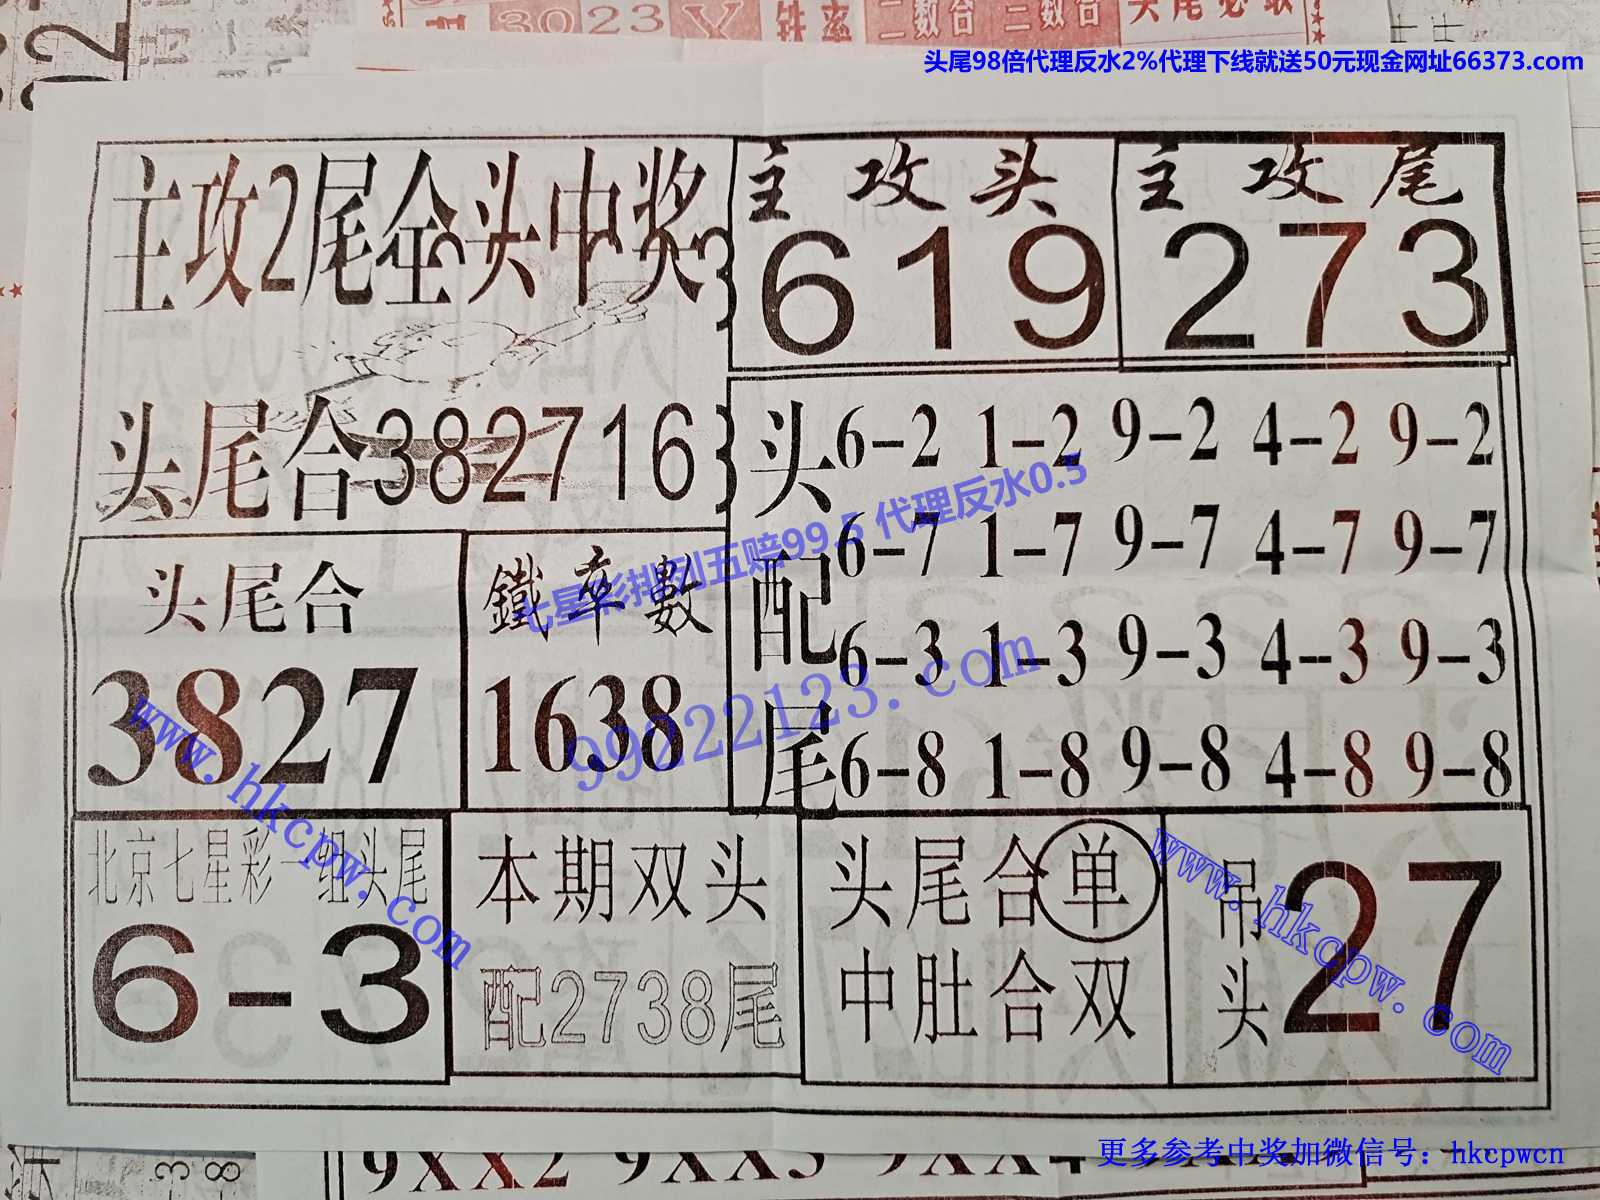 3023
铁率 二数合 二数合 头尾必取
头尾98倍代理反水2%代理下线就送50元现金网址66373.com
主攻2尾全头中奖
主攻头
619
主攻尾
273
头尾合382716
头配尾
6-2 1-2 9-2 4-2 9-2
6-7 1-7 9-7 4-7 9-7
6-3 1-3 9-3 4-3 9-3
6-8 1-8 9-8 4-8 9-8
七星彩排列五赔99.5 代理反水0.5
99222123.com
头尾合
3827
鐵率數
1638
www.hkcpw.com
北京七星彩一组头尾
6-3
本期双头
配2738尾
头尾合单
中肚合双
吊头27
www.hkcpw.com
更多参考中奖加微信号：hkcpwcn
9XX2 9XX3 9XX4